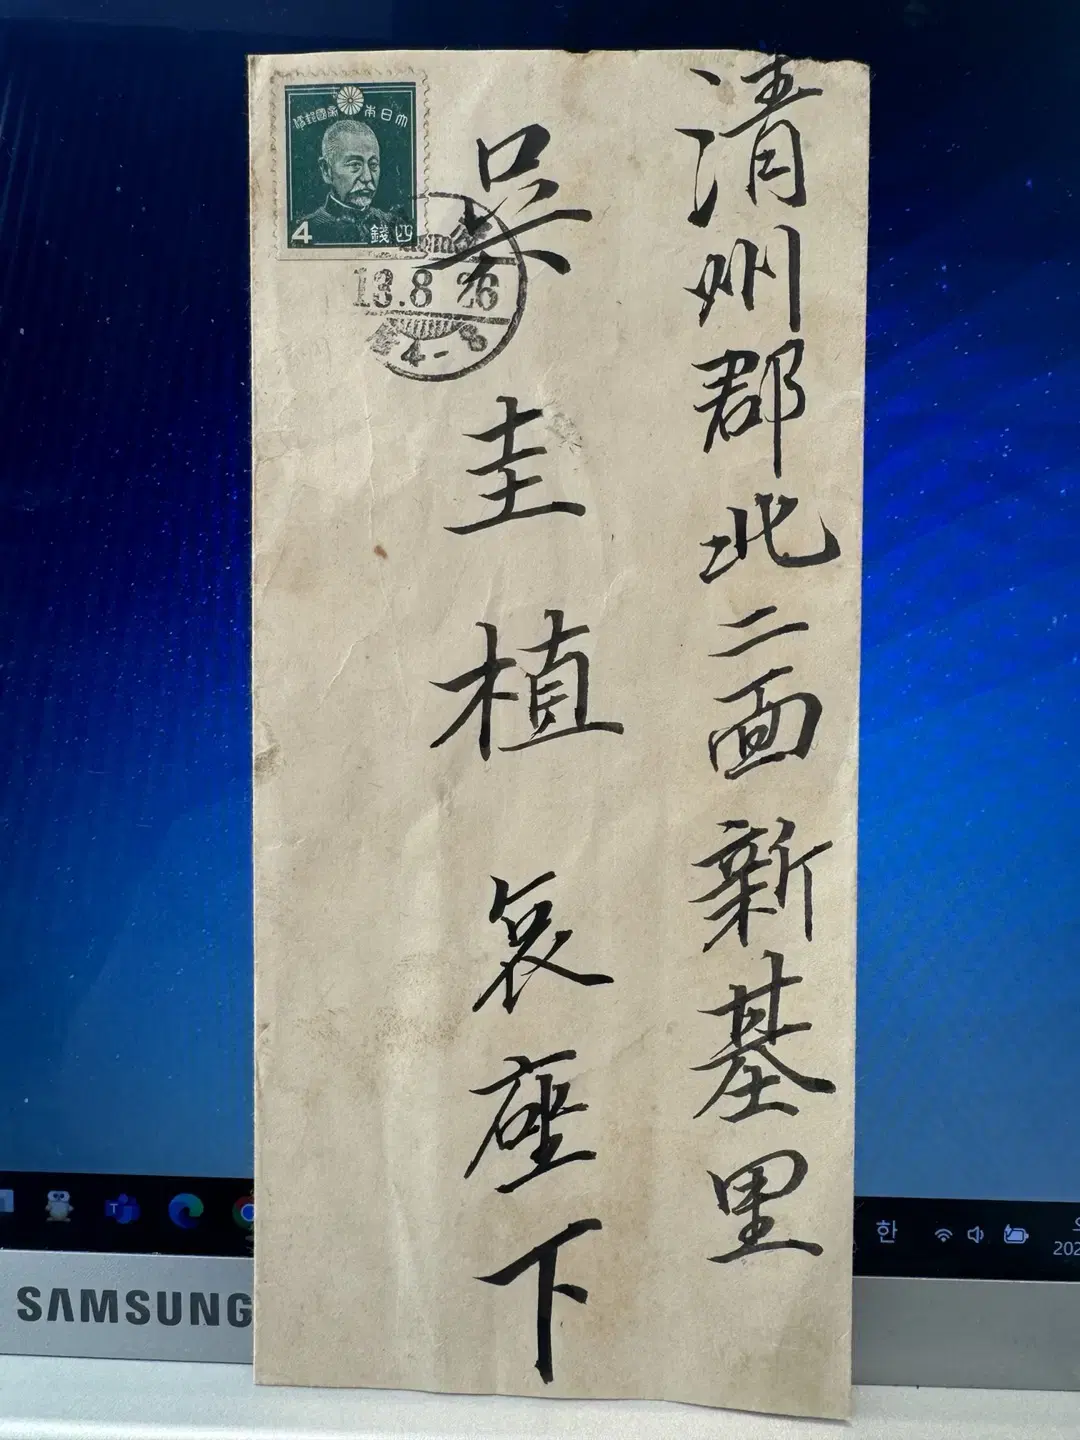 清州郡北二面新基里
吳圭植哀座下
大日本帝國郵便
4 四錢
13.8 26
4-8
SAMSUNG
한
202